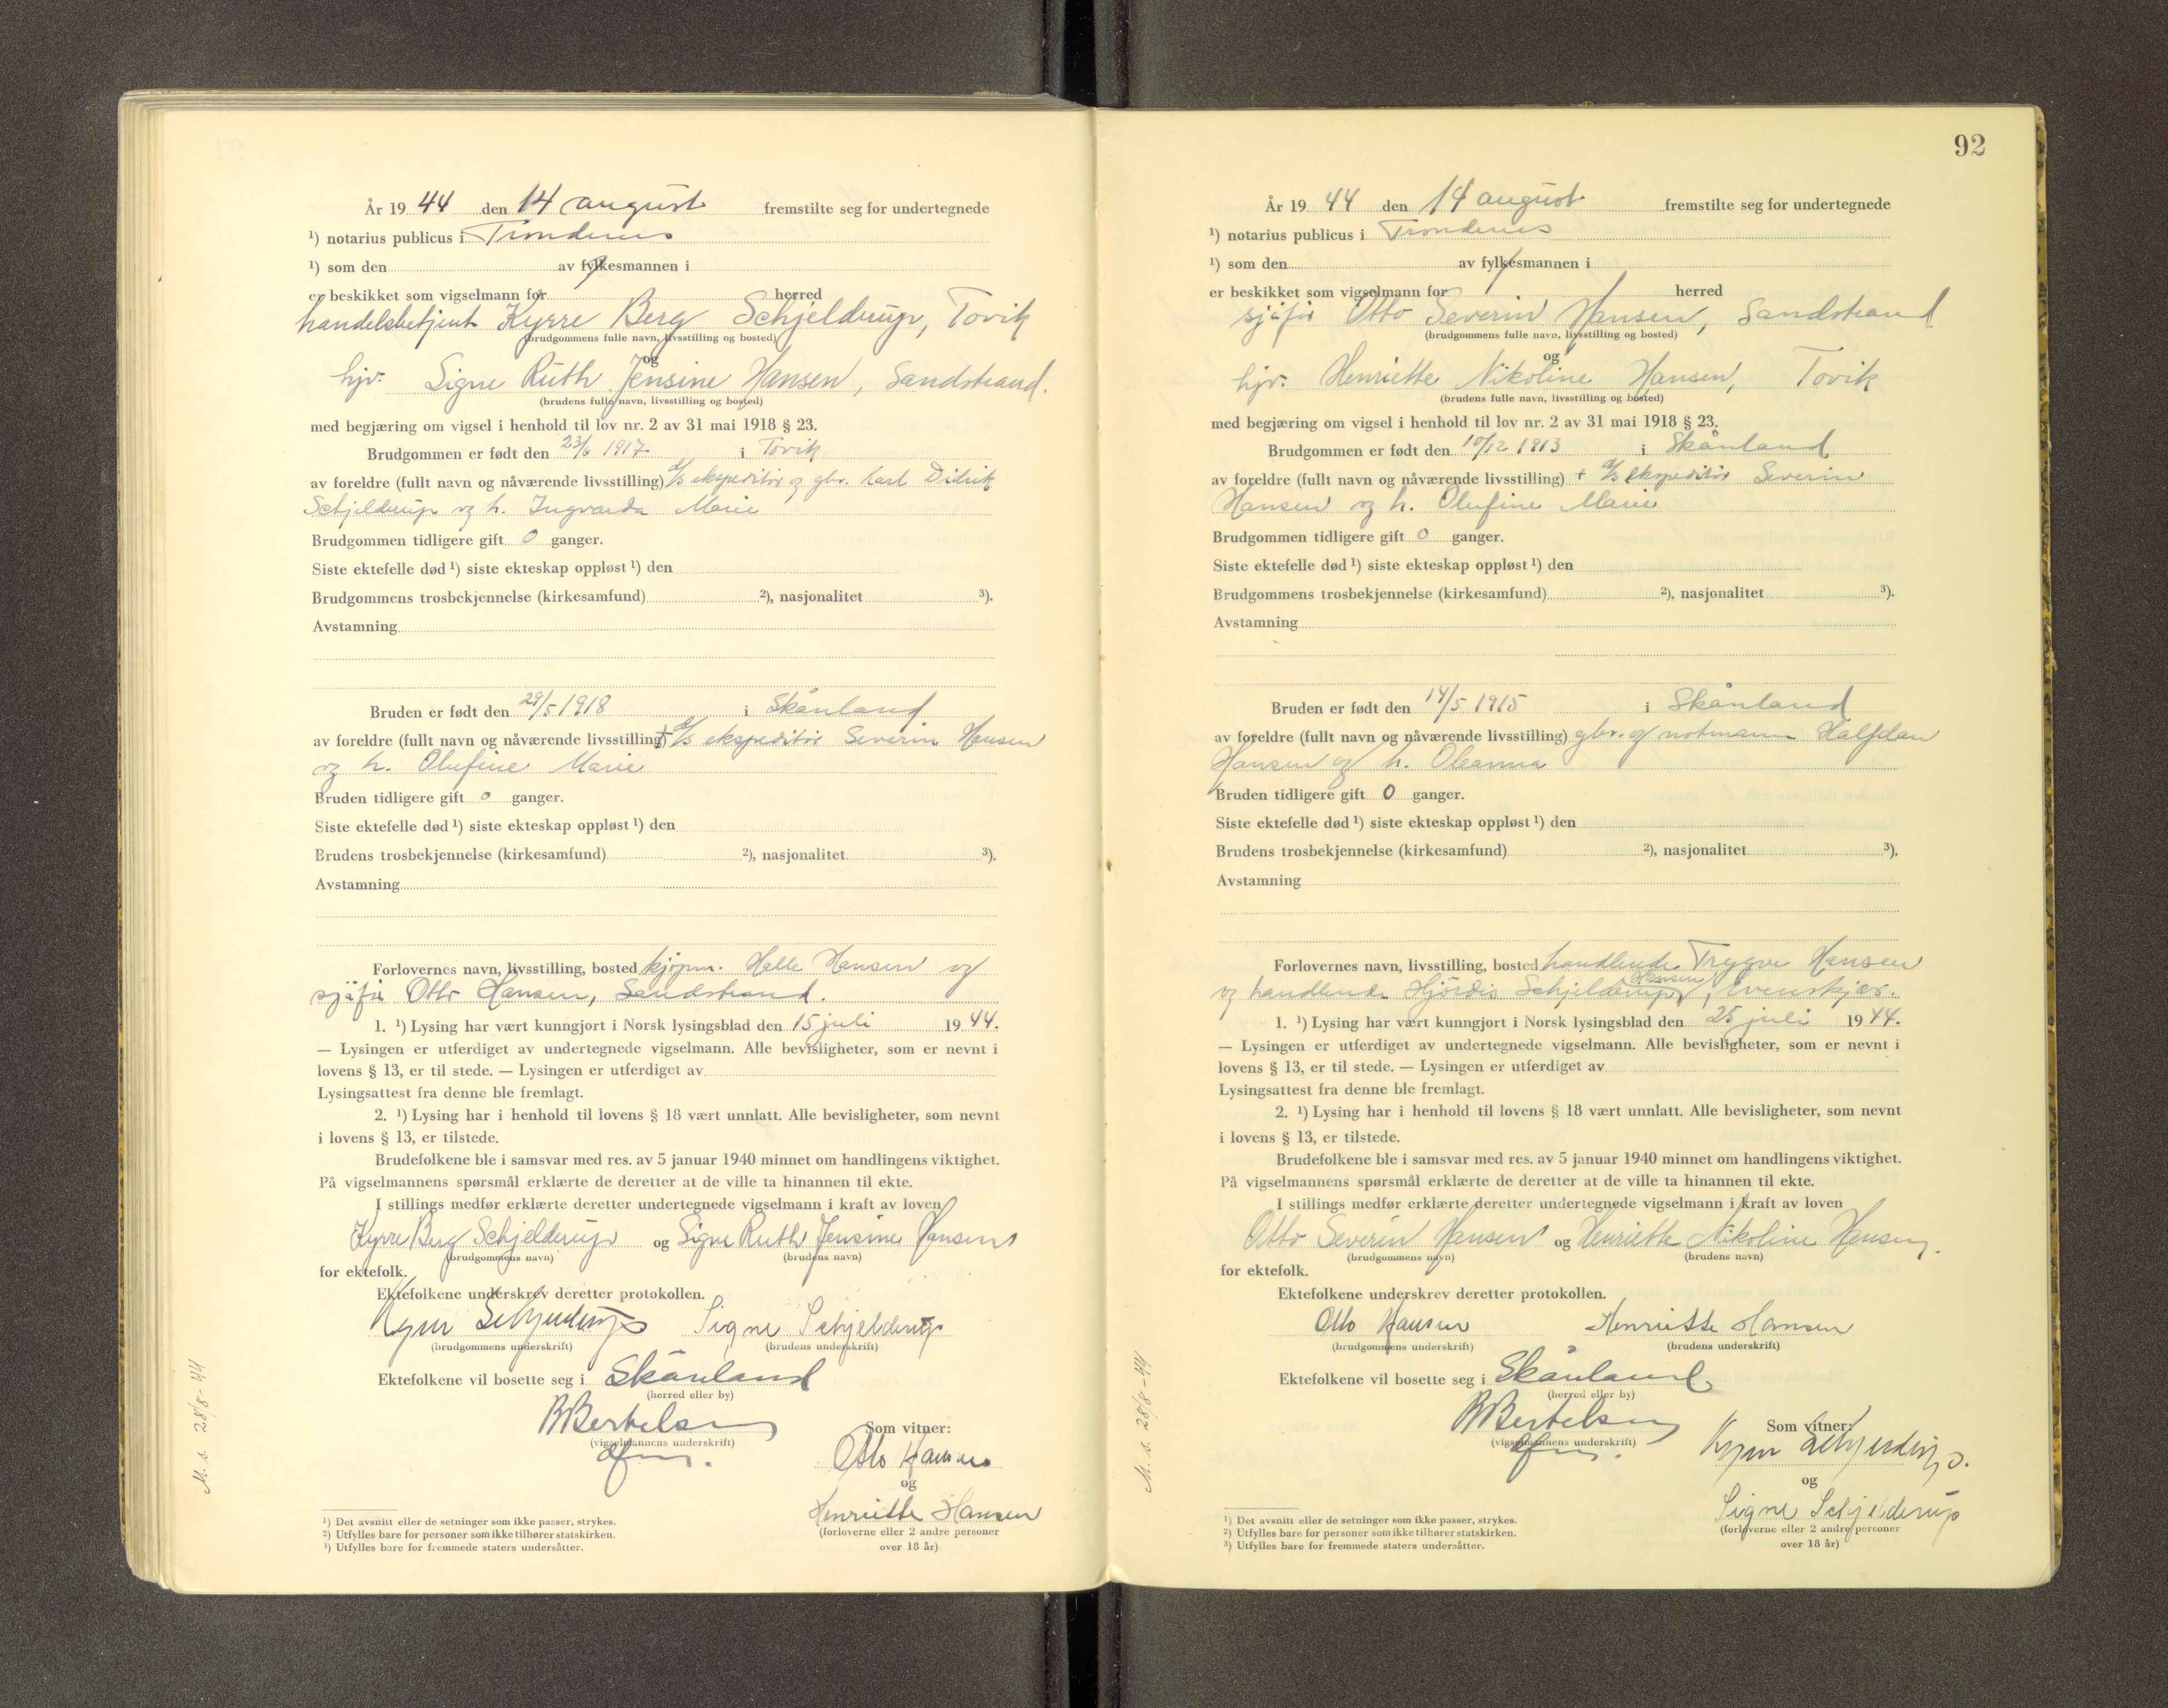 År 19 44 den 14 august fremstilte seg for undertegnede
¹) notarius publicus i Trondenes
¹) som den av fylkesmannen i
er beskikket som vigselmann for herred
handelsbetjent Kyrre Berg Schjelderup, Tovik
(brudgommens fulle navn, livsstilling og bosted)
og
hjv. Signe Ruth Jensine Hansen, Sandstrand.
(brudens fulle navn, livsstilling og bosted)
med begjæring om vigsel i henhold til lov nr. 2 av 31 mai 1918 § 23.
Brudgommen er født den 23/6 1917 i Tovik
av foreldre (fullt navn og nåværende livsstilling) d/s ekspeditör og gbr. Karl Didrik
Schjelderup og h. Ingvarda Marie
Brudgommen tidligere gift 0 ganger.
Siste ektefelle død ¹) siste ekteskap oppløst ¹) den
Brudgommens trosbekjennelse (kirkesamfund) ²), nasjonalitet ³).
Avstamning
Bruden er født den 29/5 1918 i Skånland
av foreldre (fullt navn og nåværende livsstilling) + d/s ekspeditör Severin Hansen
og h. Olufine Marie
Bruden tidligere gift 0 ganger.
Siste ektefelle død ¹) siste ekteskap oppløst ¹) den
Brudens trosbekjennelse (kirkesamfund) ²), nasjonalitet ³).
Avstamning
Forlovernes navn, livsstilling, bosted kjøpm. Helle Hansen og
sjåfør Otto Hansen, Sandstrand.
1. ¹) Lysing har vært kunngjort i Norsk lysingsblad den 15 juli 19 44.
— Lysingen er utferdiget av undertegnede vigselmann. Alle bevisligheter, som er nevnt i
lovens § 13, er til stede. — Lysingen er utferdiget av
Lysingsattest fra denne ble fremlagt.
2. ¹) Lysing har i henhold til lovens § 18 vært unnlatt. Alle bevisligheter, som nevnt
i lovens § 13, er tilstede.
Brudefolkene ble i samsvar med res. av 5 januar 1940 minnet om handlingens viktighet.
På vigselmannens spørsmål erklærte de deretter at de ville ta hinannen til ekte.
I stillings medfør erklærte deretter undertegnede vigselmann i kraft av loven
Kyrre Berg Schjelderup og Signe Ruth Jensine Hansen
(brudgommens navn) (brudens navn)
for ektefolk.
Ektefolkene underskrev deretter protokollen.
Kyrre Schjelderup Signe Schjelderup
(brudgommens underskrift) (brudens underskrift)
Ektefolkene vil bosette seg i Skånland
(herred eller by)
B Bertelsen
(vigselmannens underskrift)
Som vitner:
Otto Hansen
og
Henriette Hansen
(forloverne eller 2 andre personer
over 18 år)
M. s. 28/8-44
¹) Det avsnitt eller de setninger som ikke passer, strykes.
²) Utfylles bare for personer som ikke tilhører statskirken.
³) Utfylles bare for fremmede staters undersåtter.
92
År 19 44 den 14 august fremstilte seg for undertegnede
¹) notarius publicus i Trondenes
¹) som den av fylkesmannen i
er beskikket som vigselmann for herred
sjåfør Otto Severin Hansen, Sandstrand
(brudgommens fulle navn, livsstilling og bosted)
og
hjv. Henriette Nikoline Hansen, Tovik
(brudens fulle navn, livsstilling og bosted)
med begjæring om vigsel i henhold til lov nr. 2 av 31 mai 1918 § 23.
Brudgommen er født den 10/12 1913 i Skånland
av foreldre (fullt navn og nåværende livsstilling) + d/s ekspeditör Severin
Hansen og h. Olufine Marie
Brudgommen tidligere gift 0 ganger.
Siste ektefelle død ¹) siste ekteskap oppløst ¹) den
Brudgommens trosbekjennelse (kirkesamfund) ²), nasjonalitet ³).
Avstamning
Bruden er født den 14/5 1915 i Skånland
av foreldre (fullt navn og nåværende livsstilling) gbr. og notmann Halfdan
Hansen og h. Oleanna
Bruden tidligere gift 0 ganger.
Siste ektefelle død ¹) siste ekteskap oppløst ¹) den
Brudens trosbekjennelse (kirkesamfund) ²), nasjonalitet ³).
Avstamning
Forlovernes navn, livsstilling, bosted handlende Trygve Hansen
og handlende Hjördis Schjelderup Hansen, Evenskjær.
1. ¹) Lysing har vært kunngjort i Norsk lysingsblad den 25 juli 19 44.
— Lysingen er utferdiget av undertegnede vigselmann. Alle bevisligheter, som er nevnt i
lovens § 13, er til stede. — Lysingen er utferdiget av
Lysingsattest fra denne ble fremlagt.
2. ¹) Lysing har i henhold til lovens § 18 vært unnlatt. Alle bevisligheter, som nevnt
i lovens § 13, er tilstede.
Brudefolkene ble i samsvar med res. av 5 januar 1940 minnet om handlingens viktighet.
På vigselmannens spørsmål erklærte de deretter at de ville ta hinannen til ekte.
I stillings medfør erklærte deretter undertegnede vigselmann i kraft av loven
Otto Severin Hansen og Henriette Nikoline Hansen.
(brudgommens navn) (brudens navn)
for ektefolk.
Ektefolkene underskrev deretter protokollen.
Otto Hansen Henriette Hansen
(brudgommens underskrift) (brudens underskrift)
Ektefolkene vil bosette seg i Skånland
(herred eller by)
B Bertelsen
(vigselmannens underskrift)
Som vitner:
Kyrre Schjelderup.
og
Signe Schjelderup
(forloverne eller 2 andre personer
over 18 år)
M. s. 28/8-44
¹) Det avsnitt eller de setninger som ikke passer, strykes.
²) Utfylles bare for personer som ikke tilhører statskirken.
³) Utfylles bare for fremmede staters undersåtter.